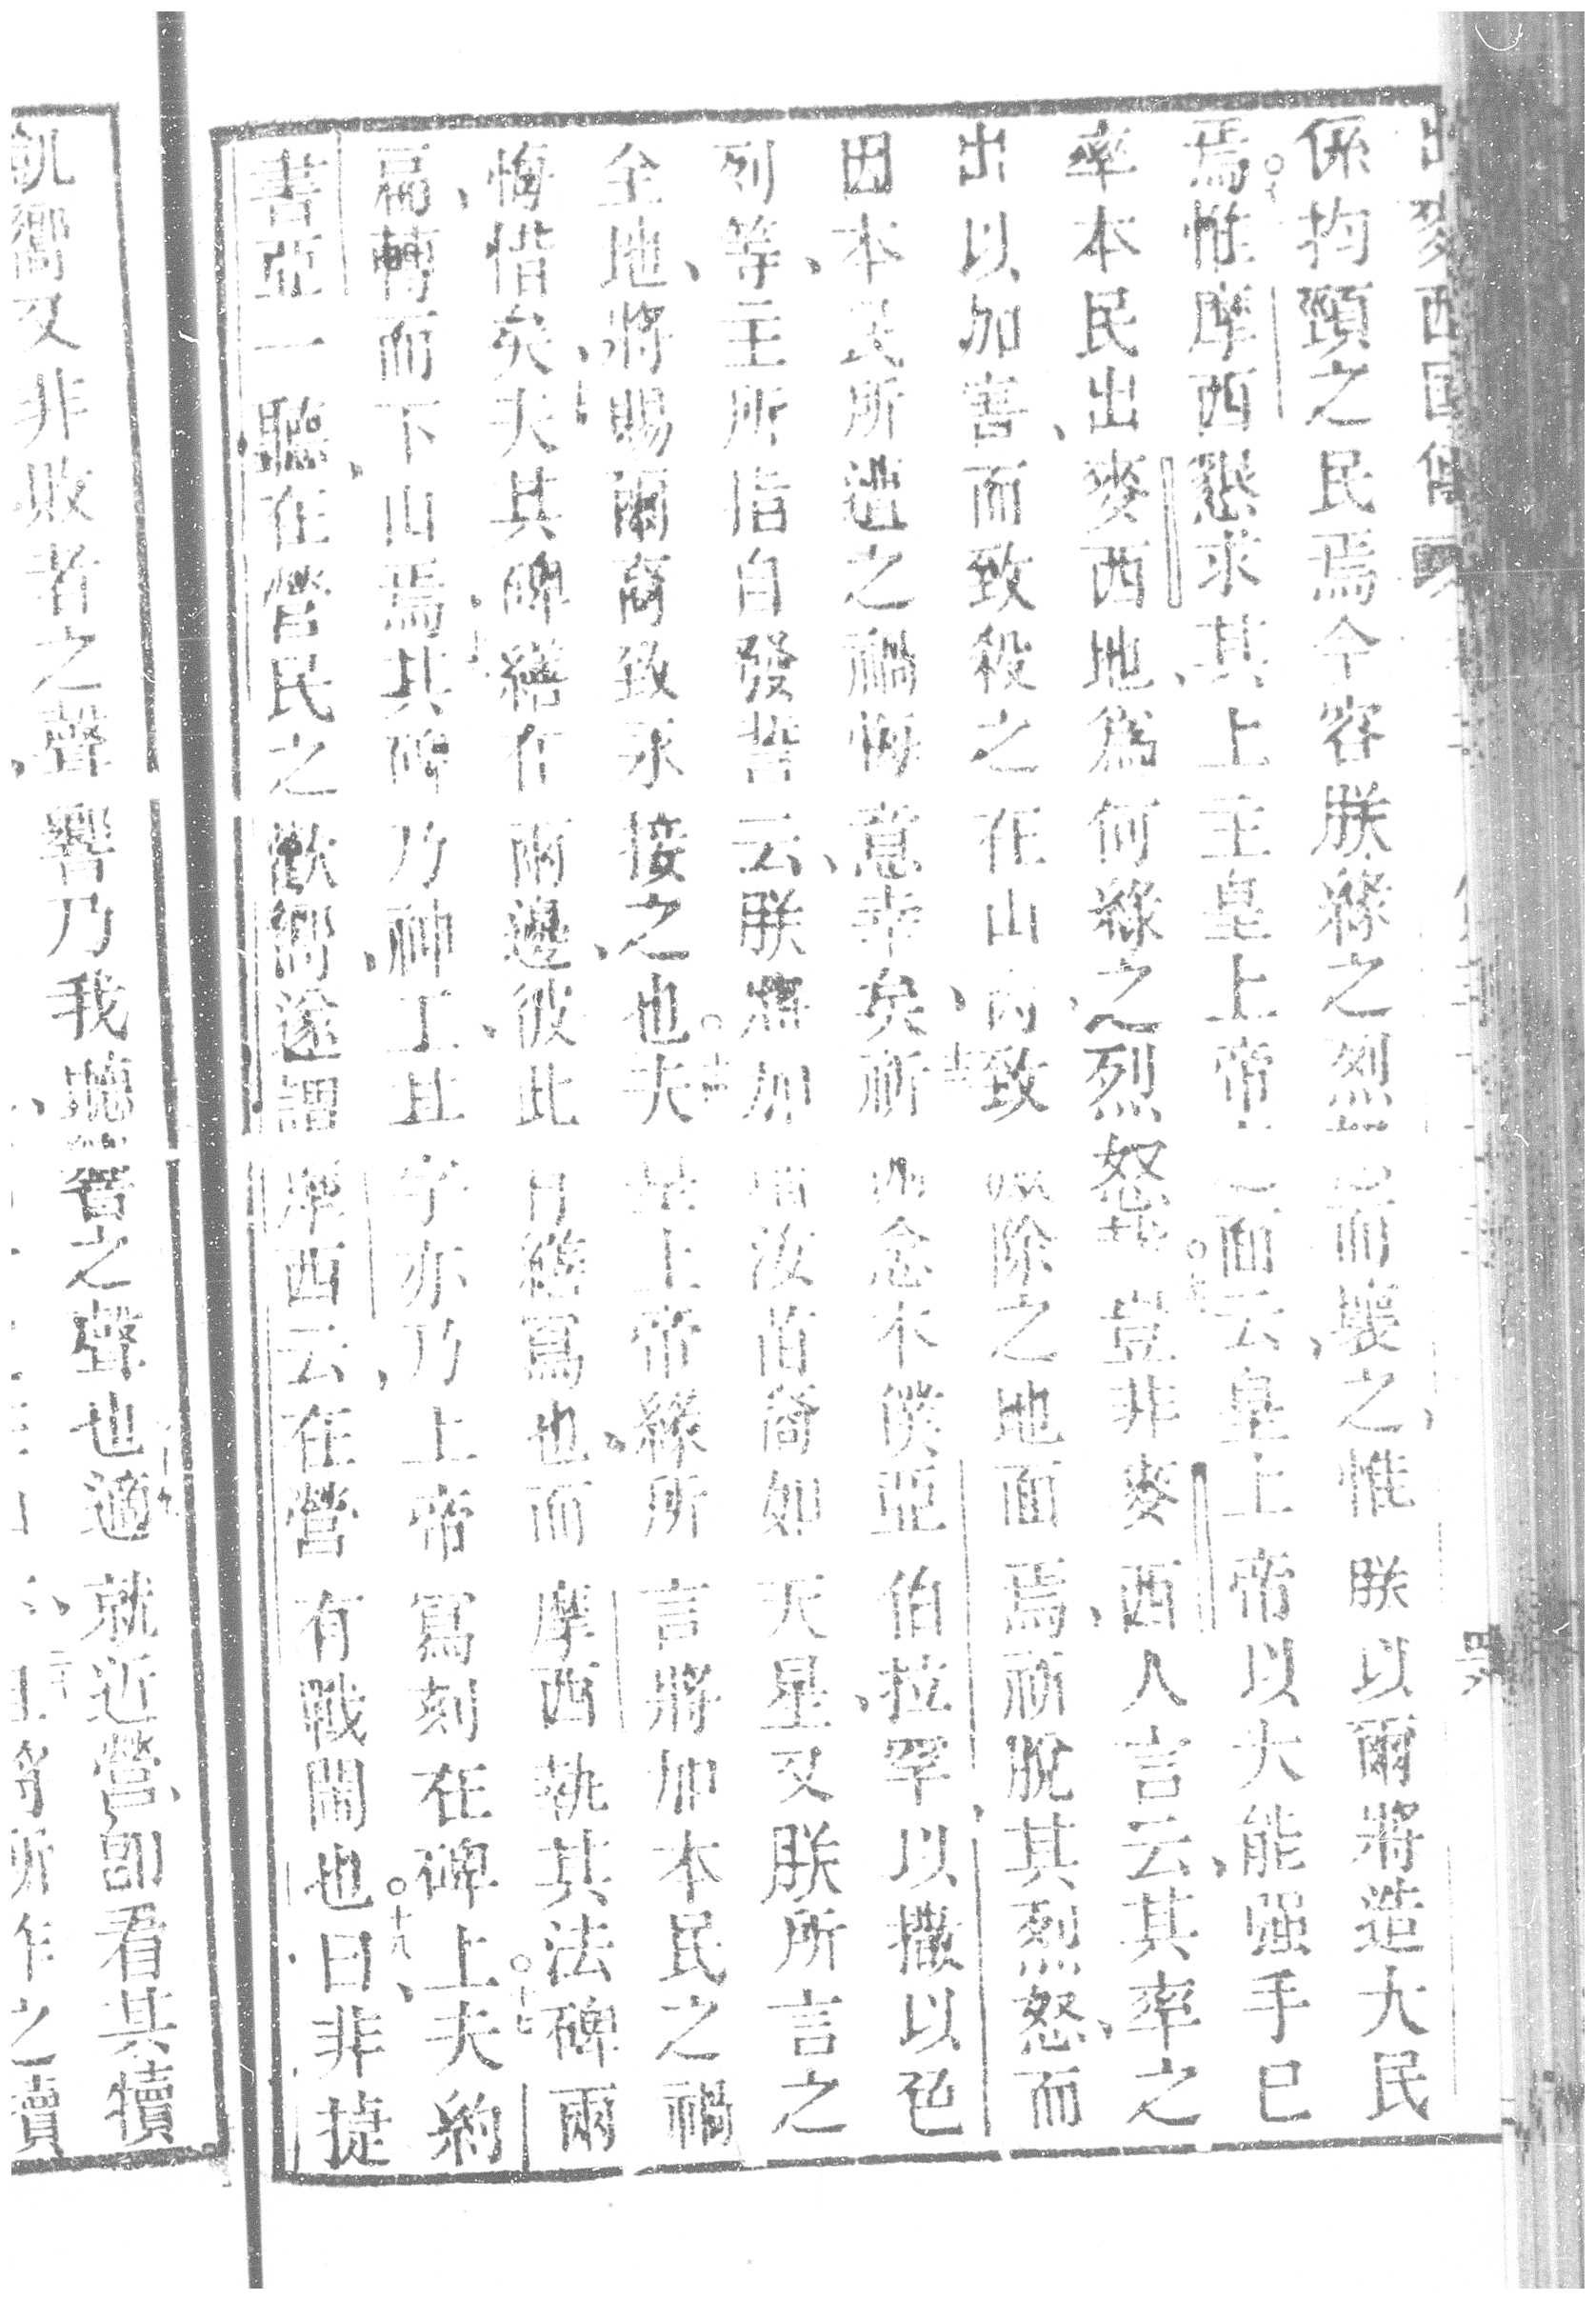 出麥西國傳
係拘頸之民焉今容朕綠之烈 而襄之惟朕以爾將造大民
焉惟摩西懇求其上主皇上帝之面云皇上帝以大能强手已
率本民出麥西地爲何綠之烈怒 豈非麥西人言云其率之
出以加害而致殺之在山而致 除之地面焉祈脫其烈怒而
因本民所遭之禍悔意幸矣祈 念本僕亞伯拉罕以撒以色
列等主所指自發誓云朕將加 汝苗裔如天星又朕所言之
全地將賜爾裔致永接之也夫 上帝綠所言將加本民之禍
悔惜矣夫其碑繕在兩邊彼此 繕寫也而摩西執其法碑兩
扁轉而下山焉其碑乃神工且字亦乃上帝寫刻在碑上夫約
書亞一聽在營民之歡嚮遂謂摩西云在營有戰鬪也曰非捷
凱嚮又非敗者之聲響乃我聽 之聲也適就近營卽看其犢
所作之犢